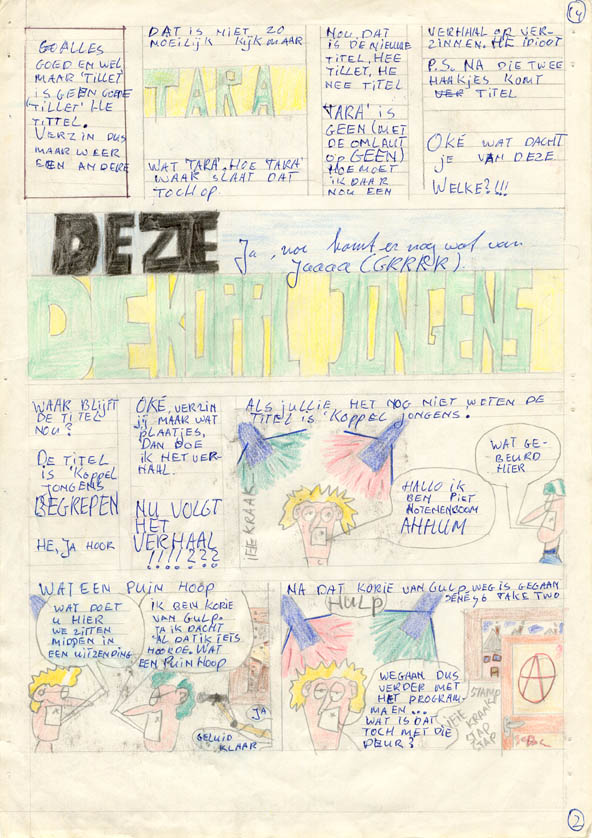 GOALLES
GOED EN WEL
MAAR 'TILLET
IS GEEN GOEDE
(TILLET' HE
TITTEL.
VERZIN DUS
MAAR WEER
EEN ANDERE
DAT IS NIET ZO
MOEILIJK KIJK MAAR
TARA
WAT 'TARA', HOE 'TARA'
WAAR SLAAT DAT
TOCH OP.
NOU, DAT
IS DE NIEUWE
TITEL, HEE
TILLET, HE
NEE TITEL
'TARA' IS
GEEN (MET
DE OMLAUT
OP GEEN)
HOE MOET
IK DAAR
NOU EEN
VERHAAL OP VER-
ZINNEN. HE IDIOOT
P.S. NA DIE TWEE
HAAKJES KOMT
TITEL
OKÉ WAT DACHT
je VAN DEZE
WELKE?!!!
DEZE
Ja, nou komt er nog wat van
Jaaaa (GRRRR).
DE KOPPEL JONGENS
WAAR BLIJFT
DE TITEL
NOU?
DE TITEL
IS 'KOPPEL
JONGENS
BEGREPEN
HE, JA HOOR
OKÉ, VERZIN
jij MAAR WAT
PLAATJES,
DAN DOE
IK HET VER-
HAAL.
NU VOLGT
HET
VERHAAL
!!!!???
ALS JULLIE HET NOG NIET WETEN DE
TITEL IS 'KOPPEL JONGENS.
IEE KRAAK
HALLO IK
BEN PIET
NOTENENBOOM
AHHUM
WAT GE-
BEURD
HIER
WAT EEN PUIN HOOP
WAT DOET
U HIER
WE ZITTEN
MIDDEN IN
EEN UITZENDING
IK BEN KORIE
VAN GULP.
JA IK DACHT
AL DAT IK IETS
HOORDE. WAT
EEN PUIN HOOP
GELUID
KLAAR
JA
NA DAT KORIE VAN GULP, WEG IS GEGAAN
TAKE TWO
HULP
WEGAAN DUS
VERDER MET
HET PROGRAM-
MA EN...
WAT IS DAT
TOCH MET DIE
DEUR?
STAMP
KRAAK
JAP
JAP
A
2